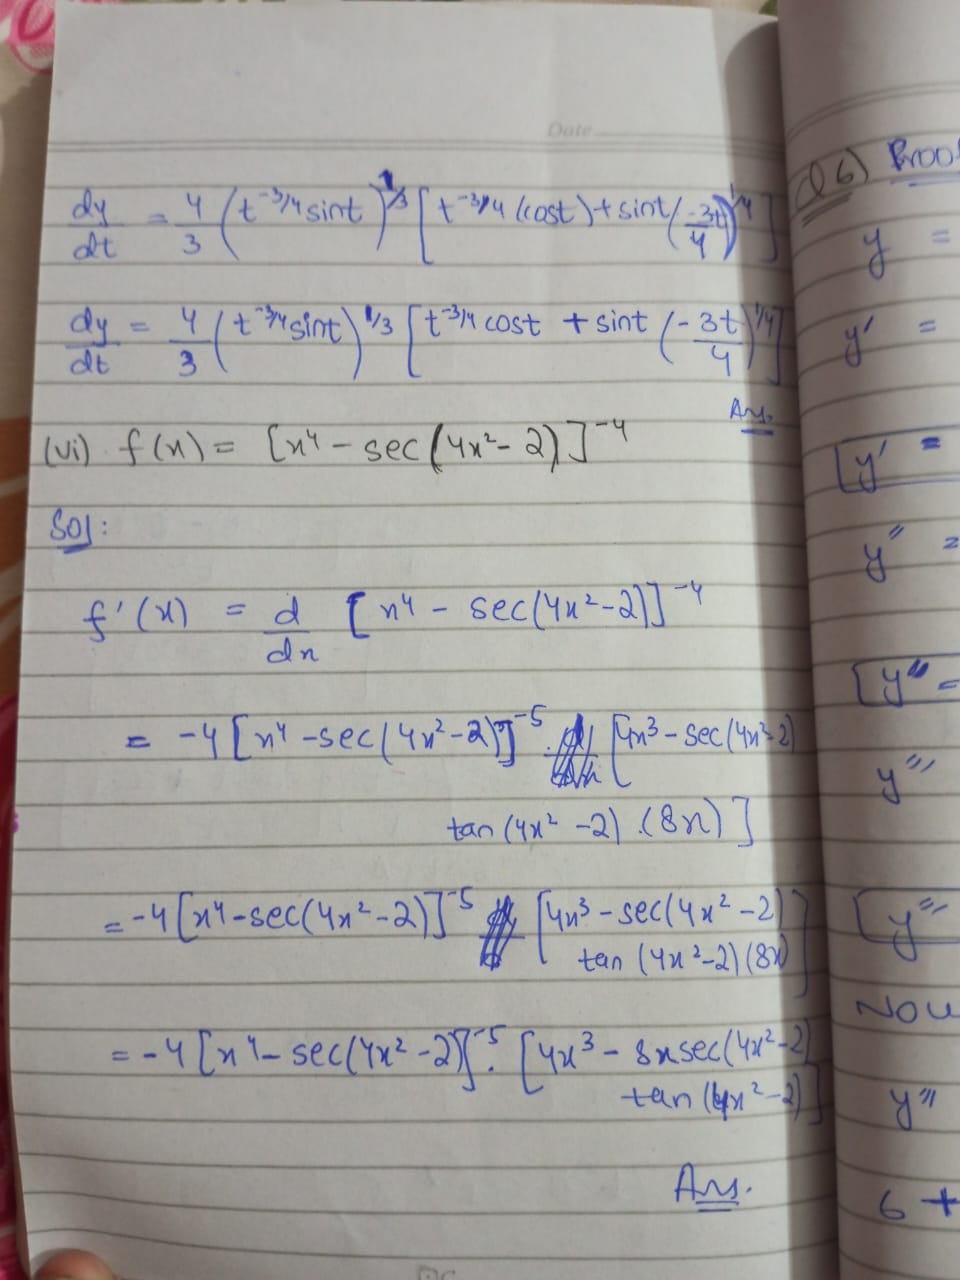 Date
dy/dt = 4/3 (t^-3/4 sint)^1/3 [t^-3/4 (cost) + sint (-3t/4)^1/4]
dy/dt = 4/3 (t^-3/4 sint)^1/3 [t^-3/4 cost + sint (-3t/4)^1/4]
Ans.
(vi) f(x) = [x^4 - sec(4x^2 - 2)]^-4
Sol:
f'(x) = d/dx [x^4 - sec(4x^2-2)]^-4
= -4[x^4 - sec(4x^2-2)]^-5 . [4x^3 - sec(4x^2-2)
tan (4x^2 - 2) . (8x)]
= -4[x^4 - sec(4x^2-2)]^-5 [4x^3 - sec(4x^2-2)
tan (4x^2-2)(8x)]
= -4[x^4 - sec(4x^2-2)]^-5 . [4x^3 - 8x sec(4x^2-2)
tan (4x^2-2)]
Ans.
Q6) Proo
y =
y' =
y' =
y'' =
y'' =
y'''
y'''
Now
y'''
6 +